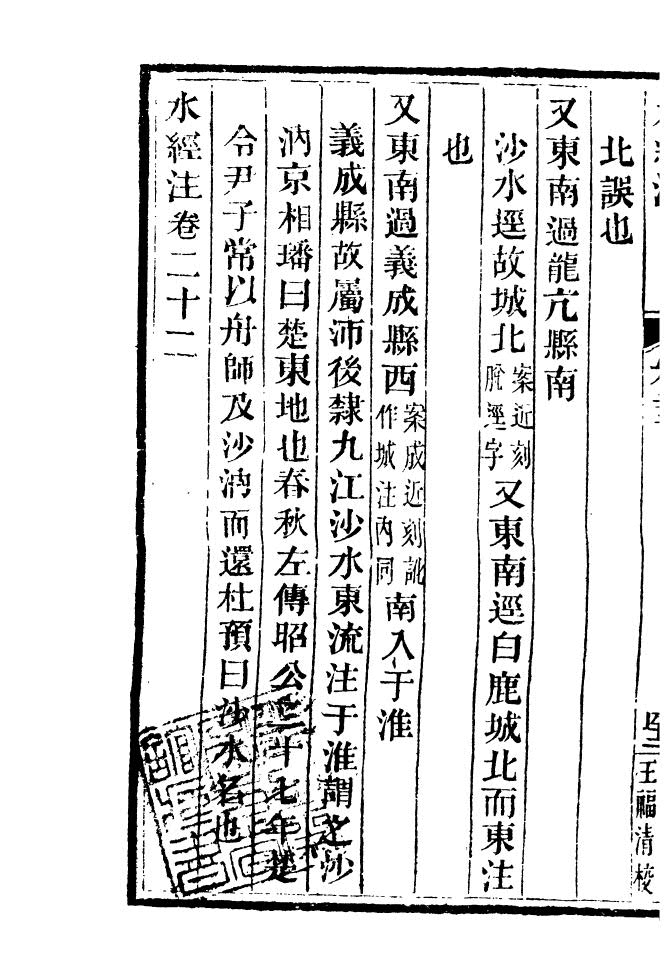 北誤也
又東南過龍亢縣南
沙水逕故城北案近刻脫逕字又東南逕白鹿城北而東注
也
又東南過義成縣西案成近刻訛作城注內同南入于淮
義成縣故屬沛後隸九江沙水東流注于淮謂之沙
汭京相璠曰楚東地也春秋左傳昭公二十七年楚
令尹子常以舟師及沙汭而還杜預曰沙水名也
水經注卷二十二
王福清校